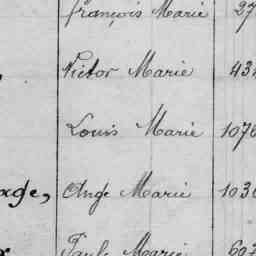 François Marie 27
Victor Marie 43
Louis Marie 1076
Ange Marie 103
Paule Marie 607